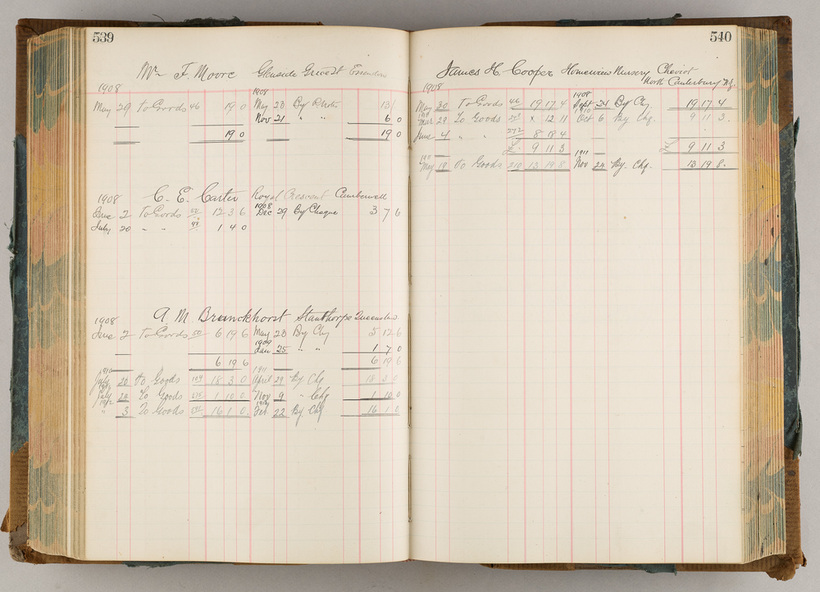 539
Mr F. Moore Glenside Grice St Essendon
1908 1908
May 29 To Goods 46 19 0 May 28 By 13
Nov 21 " " 6 0
19 0 19 0
1908 C. E. Carter Royal Crescent Camberwell
June 2 To Goods 12 3 6 1908 Dec 29 By Cheque 3 7 6
July 20 " " 1 4 0
1908 A. M. Brunckhorst Stanthorpe Queensland
June 2 To Goods 6 19 6 May 28 By Chq 5 12 6
1909 Jan 25 " " 1 7 0
6 19 6 6 19 6
1910 July 20 To Goods 18 3 0 1911 April 29 By Chq 18 3 0
July 20 To Goods 1 10 0 Nov 9 " Chq 1 10 0
1912 " 3 To Goods 16 1 0 Feb 22 By Chq 16 1 0
540
James H. Cooper Homeview Nursery Cheviot
North Canterbury N.Z.
1908 1908
May 30 To Goods 46 19 17 4 Sept 24 By Chq 19 17 4
29 To Goods 12 11 Oct 6 By Chq. 9 11 3.
June 4 " " 8 18 4
9 11 3 9 11 3
1911 May 19 To Goods 210 13 19 8 1911 Nov 24 By Chq. 13 19 8.